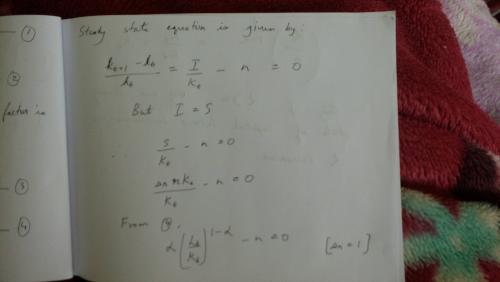 ①
Steady state equation is given by:
②
(k_{t+1} - k_t) / k_t = I / K_t - n = 0
But I = S
factor is
∴ S / K_t - n = 0
③
sn r K_t / K_t - n = 0
④
From ④,
α (L_t / K_t)^{1-α} - n = 0 [sn = 1]